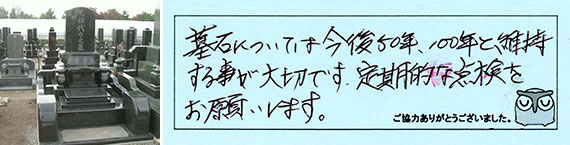 墓石については今後50年、100年と、維持
する事が大切です。定期的な点検を
お願いします。
ご協力ありがとうございました。